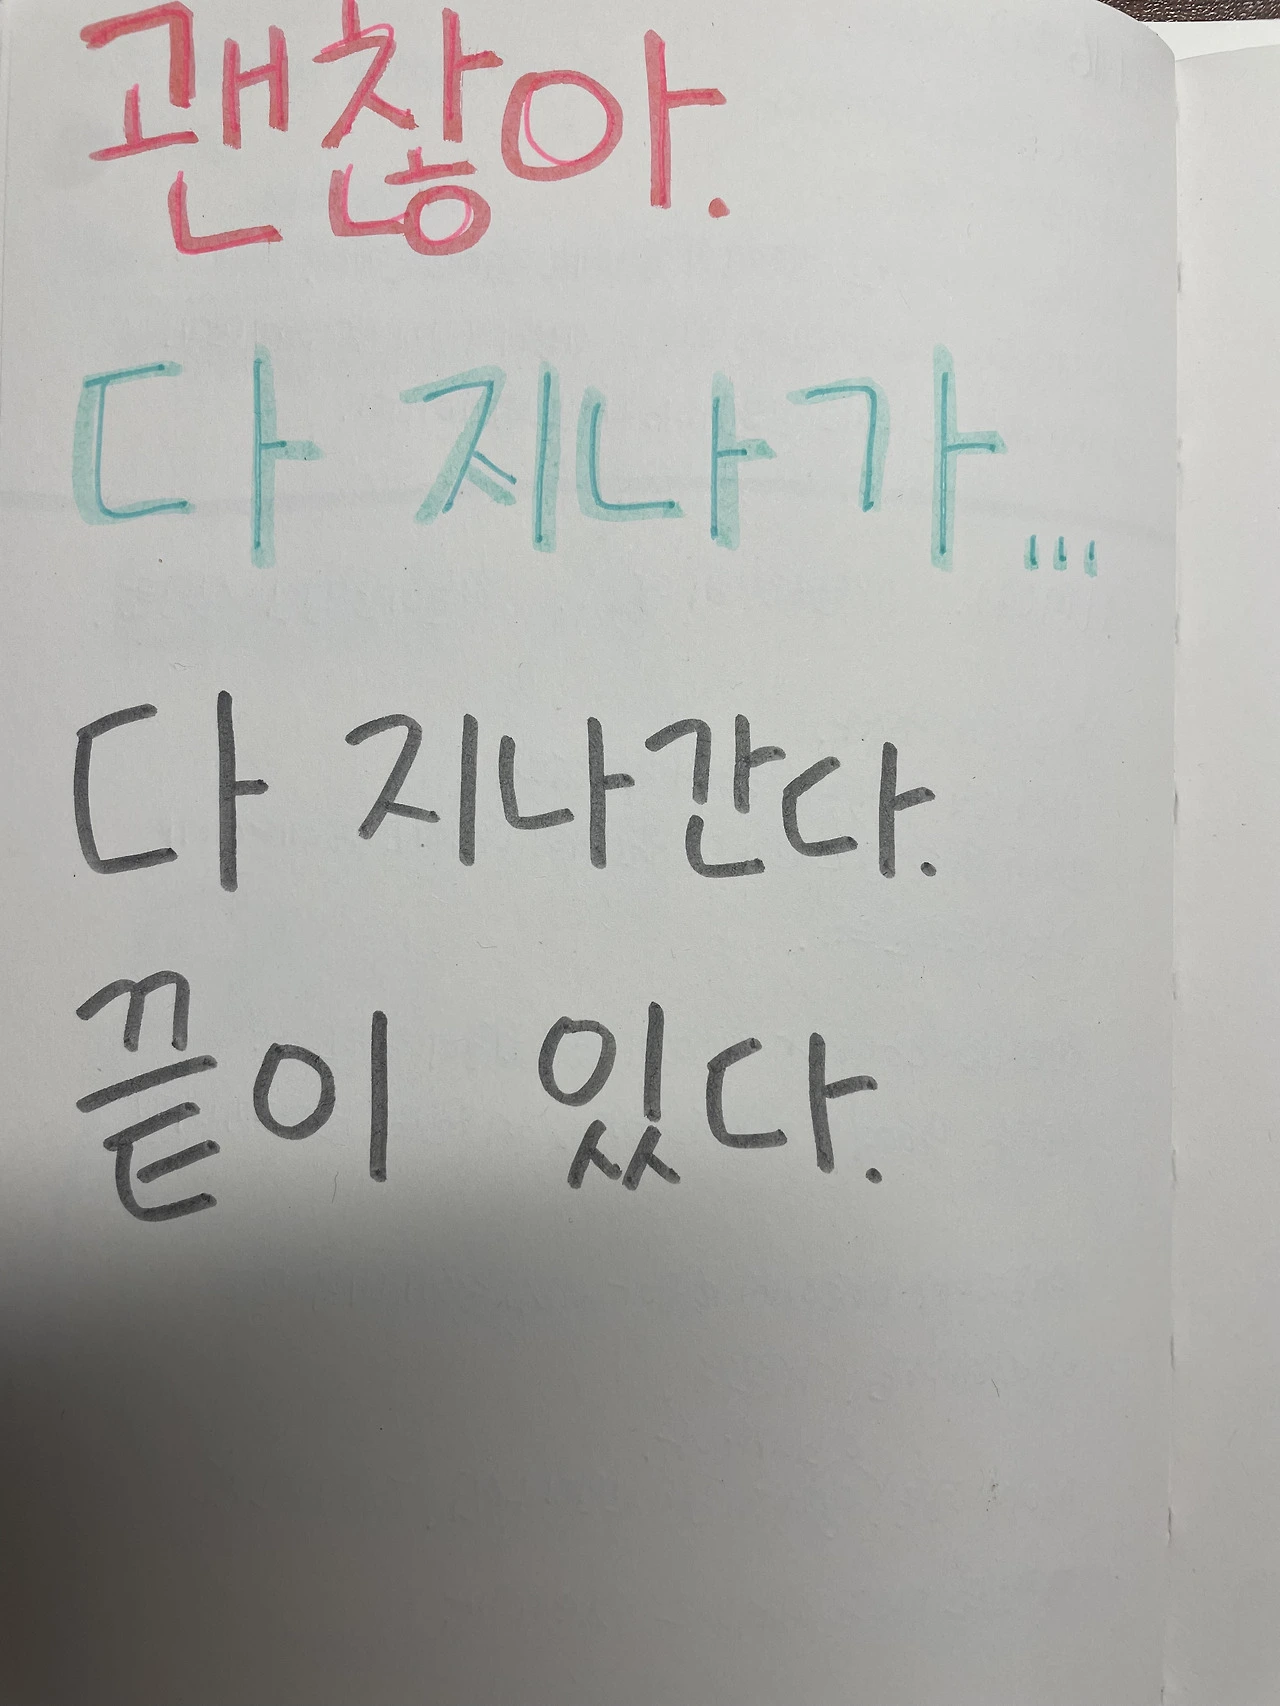 괜찮아.
다 지나가...
다 지나간다.
끝이 있다.